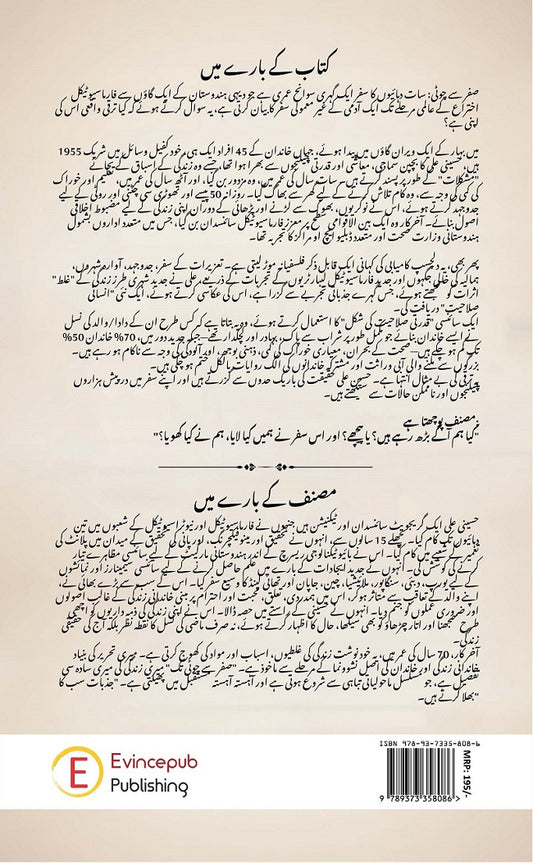 کتاب کے بارے میں
صفر سے چوٹی: سات دہائیوں کا سفر ایک گہری سوانح عمری ہے جو دیہی ہندوستان کے ایک گاؤں سے فارماسیوٹیکل
اختراع کے عالمی مرحلے تک ایک آدمی کے غیر معمولی سفر کا بیان کرتی ہے، یہ سوال کرتے ہوئے کہ کیا ترقی واقعی اس کی
اپنی ہے؟
میں بہار کے ایک ویران گاؤں میں پیدا ہوئے، جہاں خاندان کے 45 افراد ایک ہی خود کفیل وسائل میں شریک 1955
ہیں، حسینی علی کا بچپن سماجی، معاشی اور قدرتی چیلنجوں سے بھرا ہوا تھا، جسے وہ زندگی کے اسباق کے بجائے
"مشکلات" کے طور پر پسند کرتے ہیں۔ سات سال کی عمر میں، وہ مزدور بن گیا، اور آٹھ سال کی عمر میں، تعلیم اور خوراک
کی کمی کی وجہ سے، وہ کام تلاش کرنے کے لیے گھر سے بھاگ گیا۔ روزانہ 50 پیسے اور تھوڑی سی چٹنی اور روٹی کے لیے
جدوجہد کرتے ہوئے، اس نے نوکریوں، بھوک سے لڑنے اور پڑھائی کے دوران اپنی زندگی کے لیے مضبوط اخلاقی
اصول بنائے۔ آخر کار وہ ایک بین الاقوامی سطح پر معزز فارماسیوٹیکل سائنسدان بن گیا، جس میں متعدد اداروں بشمول
ہندوستانی وزارت صحت اور متعدد ڈبلیو ایچ او مراکز کا تجربہ تھا۔
پھر بھی، یہ دلچسپ کامیابی کی کہانی ایک قابل ذکر فلسفیانہ موڑ لیتی ہے۔ تعزیرات کے سفر، جدوجہد، آوارہ شہروں،
ہمالیہ کی خالی جگہوں اور جدید فارماسیوٹیکل لیبارٹریوں کے تجربات کے ذریعے، علی نے جدید شہری طرز زندگی کے "غلط"
اثرات کو سمجھتے ہوئے، جس گہرے جذباتی تجربے سے گزرا ہے، اس کی عکاسی کرتے ہوئے، ایک نئی "انسانی
صلاحیت" دریافت کی۔
ایک سائنسی "قدرتی صلاحیت کی شکل" کا استعمال کرتے ہوئے، وہ یہ بتاتا ہے کہ کس طرح ان کے دادا/والد کی نسل
نے ایسے خاندان بنائے جو مکمل طور پر شراب سے پاک، بہادر اور لچکدار تھے—جبکہ جدید دور میں، 70% خاندان 50%
تک کم ہو چکے ہیں—صحت کے بحران، معیاری خوراک کی کمی، ذہنی بوجھ، اور آلودگی کی وجہ سے ناکام ہو رہے ہیں۔
بزرگوں سے ملنے والی آبی وراثت اور مشترکہ خاندانوں کی الگ روایات بالکل ختم ہو چکی ہیں۔
یہ ترقی کی بے مثال انتہا ہے۔ حسین علی حقیقت کی باریک حدوں سے گزرتے ہیں اور اپنے سفر میں درپیش ہزاروں
چیلنجوں اور ناممکن حالات سے سیکھتے ہیں۔
مصنف پوچھتا ہے
"کیا ہم آگے بڑھ رہے ہیں؟ یا پیچھے؟ اور اس سفر نے ہمیں کیا لایا، ہم نے کیا کھویا؟"
مصنف کے بارے میں
حسینی علی ایک گریجویٹ سائنسدان اور ٹیکنیشن ہیں جنہوں نے فارماسیوٹیکل اور نیوٹراسیوٹیکل کے شعبوں میں تین
دہائیوں تک کام کیا۔ پچھلے 15 سالوں سے، انہوں نے تحقیق اور مینوفیکچرنگ، اور پانی کی تحقیق کے میدان میں پلانٹ کی
تعمیر کے شعبے میں کام کیا۔ اس نے بائیوٹیکنالوجی ریسرچ کے اندر ہندوستانی مارکیٹ کے لیے سائنسی مظاہرے تیار
کرنے کی کوشش کی۔ انہوں نے جدید ایجادات کے بارے میں علم حاصل کرنے کے لیے سائنسی سیمینارز اور نمائشوں
کے لیے یورپ، دبئی، سنگاپور، ملائیشیا، چین، جاپان اور تھائی لینڈ کا وسیع سفر کیا۔ اس کے سب سے بڑے بھائی نے،
اپنے والد کے تعاقب سے متاثر ہو کر، اس میں ہمدردی، تعلق، محبت اور احترام پر مبنی زندگی کے غالب اصولوں
اور ضروری عملوں کو جنم دیا۔ انہوں نے حسینی کے راستے میں حصہ ڈالا۔ اس نے اپنی زندگی کی ذمہ داریوں کو اچھی
طرح سمجھنا اور اتار چڑھاؤ کو بھی سیکھا، حال کا اظہار کرتے ہوئے، نہ صرف ماضی کی نسل کا نقطہ نظر بلکہ آج کی حقیقی
زندگی۔
آخر کار، 70 سال کی عمر میں، یہ خود نوشت زندگی کی غلطیوں، اسباب اور مواد کی کھوج کرتی ہے۔ میری تحریر کی بنیاد
خاندانی زندگی اور خاندان کی اصل نشوونما کے مرحلے سے ماخوذ ہے۔ "صفر سے چوٹی تک" میری زندگی کی میری سادہ سی
تفصیل ہے، جو مسلسل ماحولیاتی تباہی سے شروع ہوتی ہے اور آہستہ آہستہ مستقبل میں پھیلتی ہے۔ "جذبات سب کا
"بھلا کرتے ہیں۔
E
Evincepub
Publishing
ISBN 978-93-7335-808-6
9 789373 358086 >
MRP: 195/-